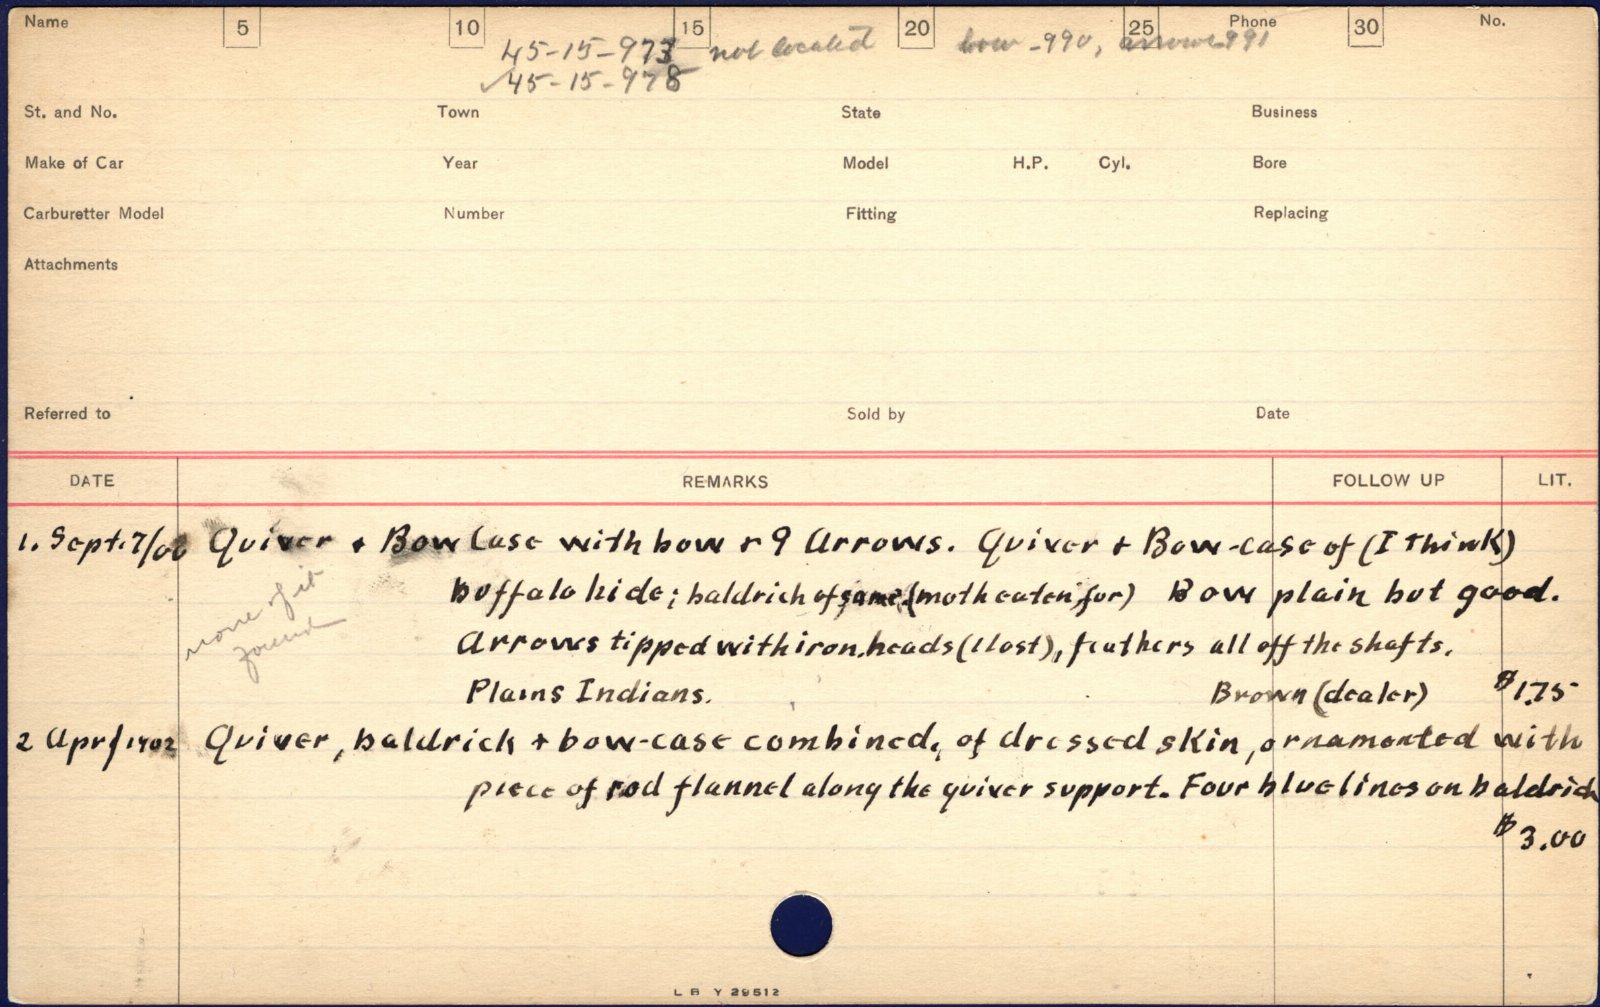 Name 5 10 15 20 25 Phone 30 No.
45-15-973 not located bow-990, arrows-991
✓45-15-978
St. and No. Town State Business
Make of Car Year Model H.P. Cyl. Bore
Carburetter Model Number Fitting Replacing
Attachments
Referred to Sold by Date
DATE REMARKS FOLLOW UP LIT.
1. Sept. 7/00 Quiver + Bow Case with bow + 9 Arrows. Quiver + Bow-case of (I think)
buffalo hide; baldrich of same. (moth eaten, fur) Bow plain but good.
none of it
found
Arrows tipped with iron, heads (1 lost), feathers all off the shafts.
Plains Indians. Brown (dealer) $1.75
2 Apr/1902 Quiver, baldrick + bow-case combined, of dressed skin, ornamented with
piece of red flannel along the quiver support. Four blue lines on baldrick
$3.00
L B Y 29512